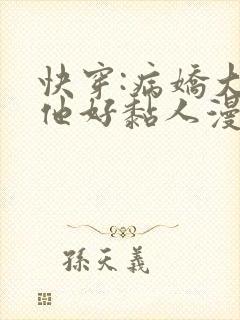 快穿:病嬌大
他好黏人漫
孫天義